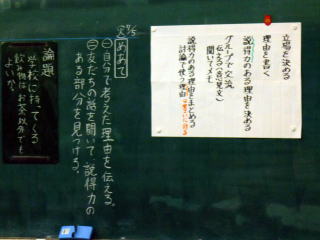 立場を決める
理由を書く
説得力のある理由を決める
グループで交流
伝える(意見文)
聞いてメモ
説得力のある理由をまとめる
討論で使う理由
めあて
一自分で考えた理由を伝える。
二友だちの話を聞いて、説得力の
ある部分を見つける。
論題
学校に持ってくる
飲み物はお茶以外でも
よいか。